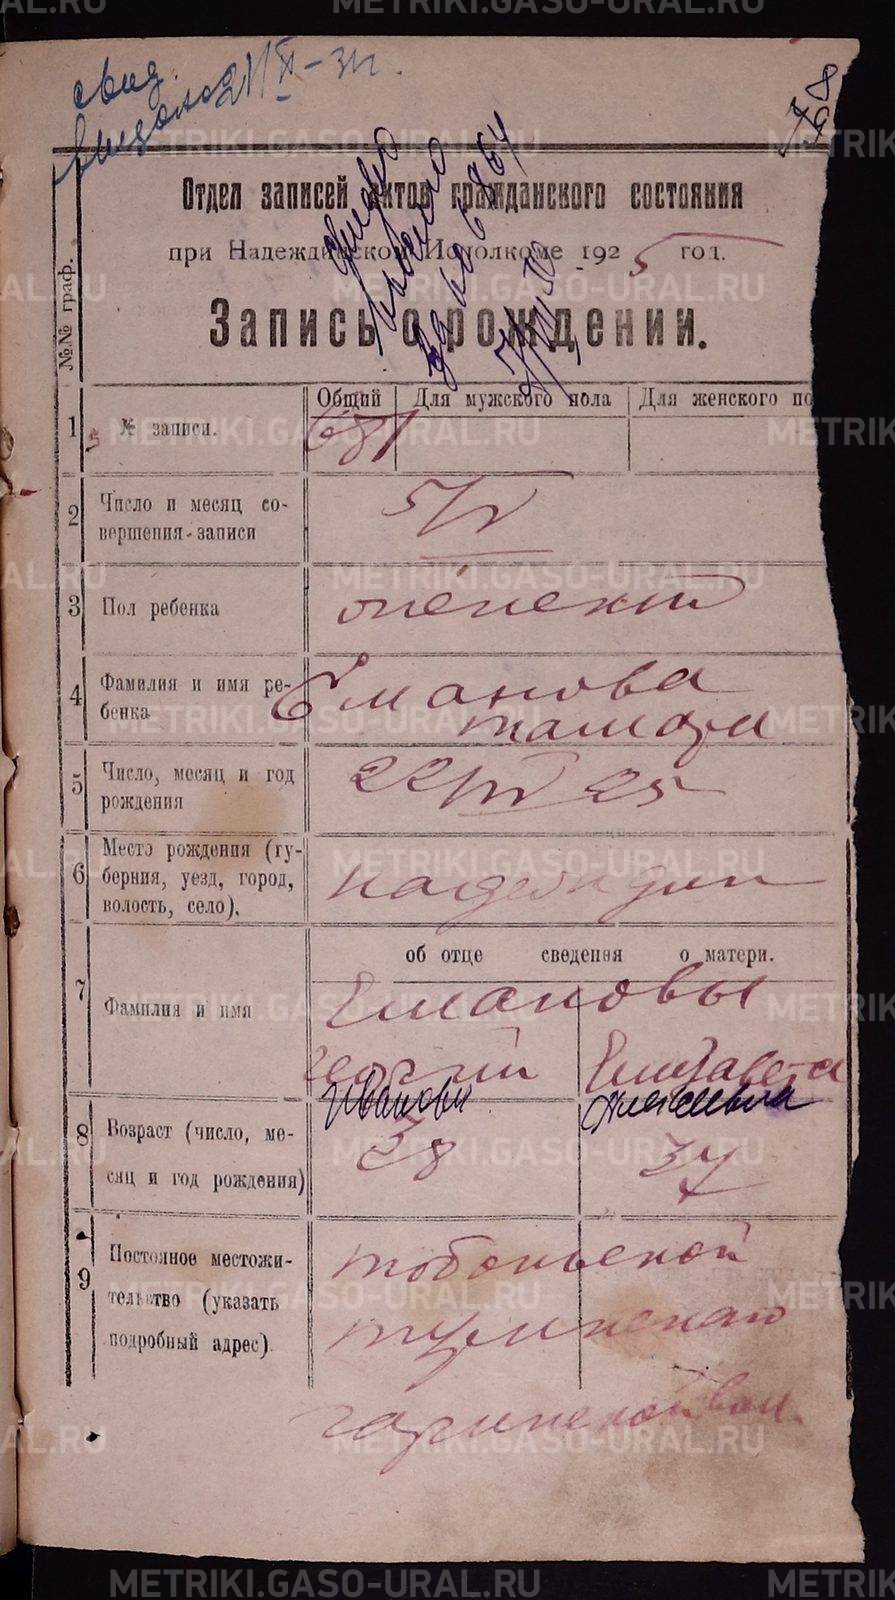 свид.
выдано 21/XI-31г.
168
Отдел записей актов гражданского состояния
при Надеждинском Исполкоме 1925 год.
Запись о рождении.
№№ граф.
Общий Для мужского пола Для женского по
1 № записи. 681
2 Число и месяц со-
вершения записи 5/V
3 Пол ребенка женский
4 Фамилия и имя ре-
бенка Еманова
Тамара
5 Число, месяц и год
рождения 22/IV 25
6 Место рождения (гу-
берния, уезд, город,
волость, село).
об отце сведения о матери.
7 Фамилия и имя Емановы
Георгий Елизавета
Иванович Алексеевна
8 Возраст (число, ме-
сяц и год рождения) 38 37
9 Постоянное местожи-
тельство (указать
подробный адрес)
Тобольской
Туринского
Гаринской вол.
METRIKI.GASO-URAL.RU